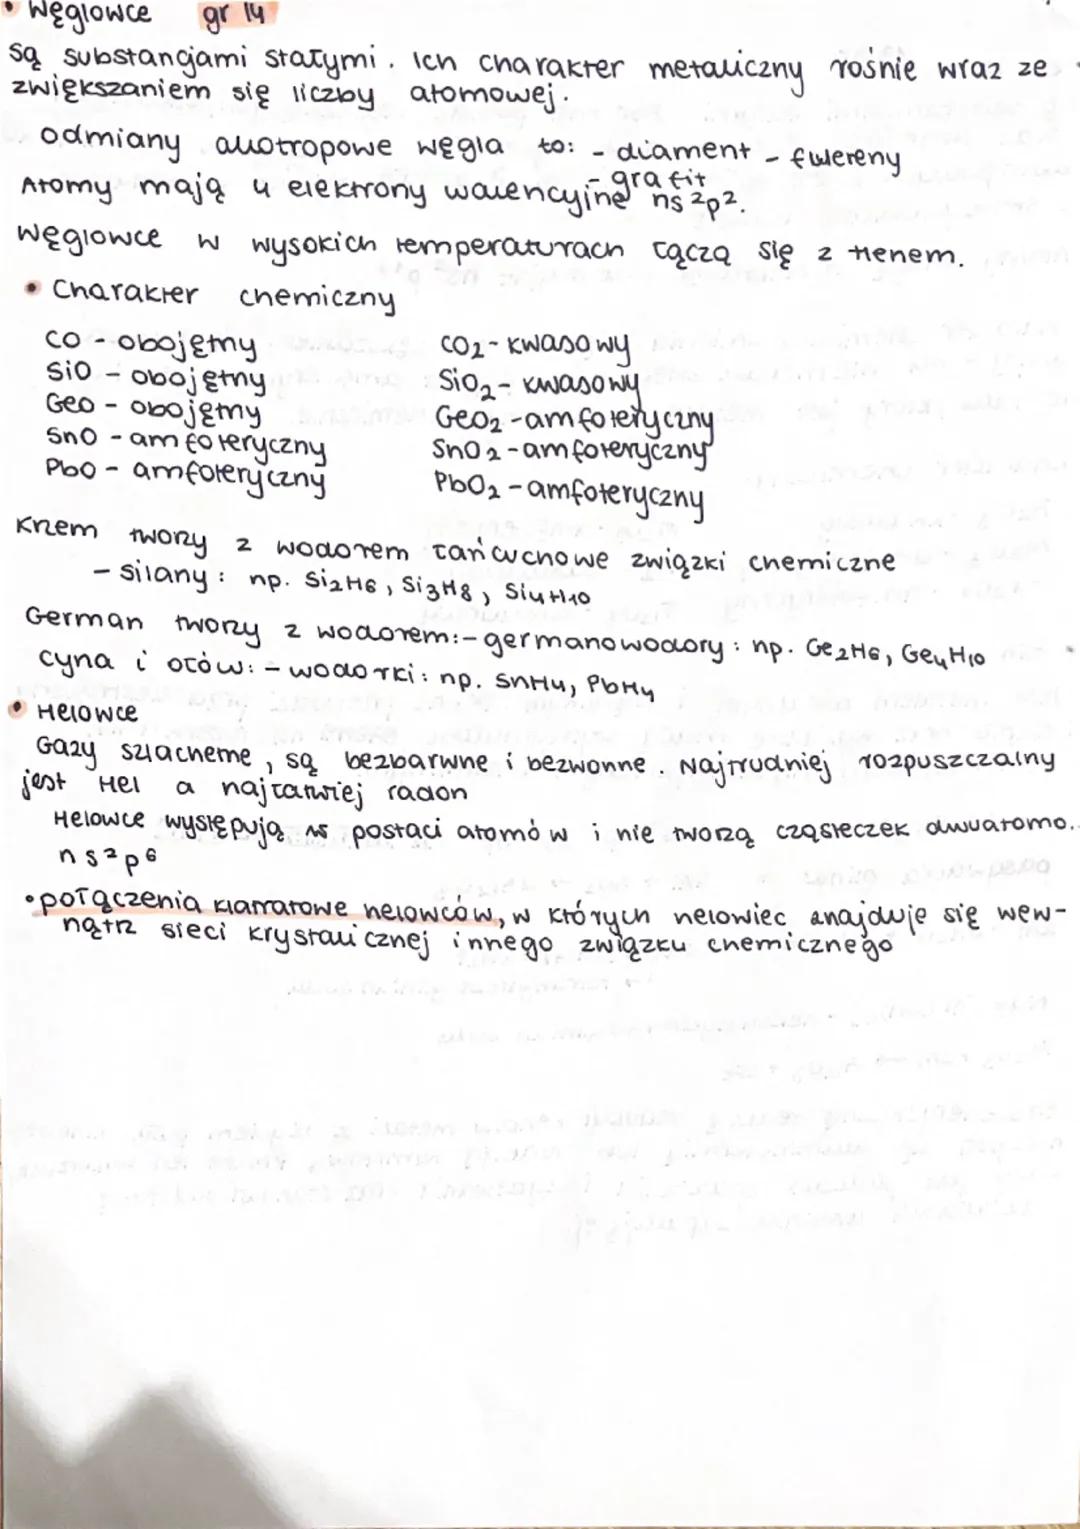 • Węglowce gr 14
są substancjami stałymi. Ich charakter metaliczny rośnie wraz ze
zwiększaniem się liczby atomowej.
odmiany alotropowe węgla to: - diament - fulereny
- grafit
Atomy mają 4 elektrony walencyjne ns²p².
Węglowce w wysokich temperaturach łączą się z tlenem.
• Charakter chemiczny
CO - obojętny CO₂ - kwasowy
SiO - obojętny SiO₂ - kwasowy
GeO - obojętny GeO₂ - amfoteryczny
SnO - amfoteryczny SnO₂ - amfoteryczny
PbO - amfoteryczny PbO₂ - amfoteryczny
Krzem tworzy z wodorem łańcuchowe związki chemiczne
- silany: np. Si₂H₆, Si₃H₈, Si₄H₁₀
German tworzy z wodorem: - germanowodory: np. Ge₂H₆, Ge₄H₁₀
cyna i ołów: - wodorki: np. SnH₄, PbH₄
• Helowce
Gazy szlachetne, są bezbarwne i bezwonne Najtrudniej rozpuszczalny
jest Hel a najłatwiej radon
Helowce występują w postaci atomów i nie tworzą cząsteczek dwuatomo..
ns²p⁶
• połączenia klatratowe helowców, w których helowiec znajduje się wew-
nątrz sieci krystalicznej innego związku chemicznego